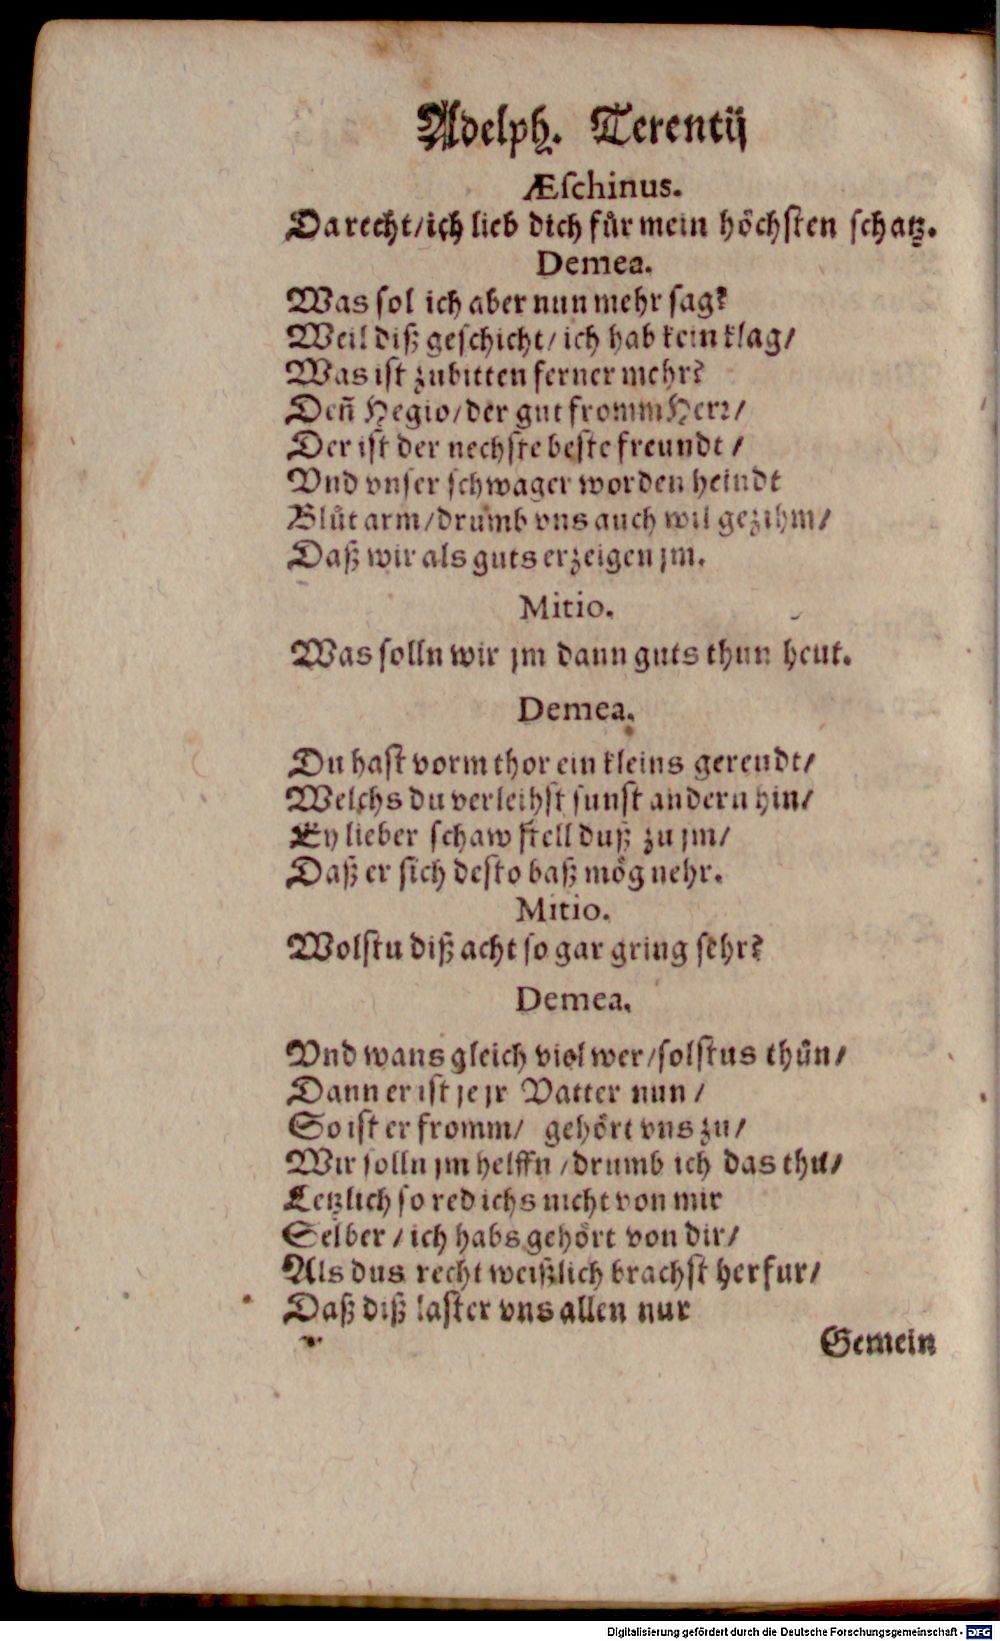 Adelph. Terentij
Æſchinus.
Da recht/ ich lieb dich fuͤr mein hoͤchſten ſchatz.
Demea.
Was ſol ich aber nun mehr ſag?
Weil diß geſchicht/ ich hab kein klag/
Was iſt zubitten ferner mehr?
Deñ Hegio/ der gut fromm Herꝛ/
Der iſt der nechſte beſte freundt /
Vnd vnſer ſchwager worden heindt
Bluͤt arm/ drumb vns auch wil gezihm/
Daß wir als guts erzeigen jm.
Mitio.
Was ſolln wir jm dann guts thun heut.
Demea.
Du haſt vorm thor ein kleins gereudt/
Welchs du verleihſt ſunſt andern hin/
Ey lieber ſchaw ſtell duß zu jm/
Daß er ſich deſto baß moͤg nehr.
Mitio.
Wolſtu diß acht ſo gar gring ſehr?
Demea.
Vnd wans gleich viel wer/ ſolſtus thuͦn/
Dann er iſt je jr Vatter nun /
So iſt er fromm/ gehoͤrt vns zu/
Wir ſolln jm helffn / drumb ich das thu/
Letzlich ſo red ichs nicht von mir
Selber / ich habs gehoͤrt von dir/
Als dus recht weißlich brachſt herfur/
Daß diß laſter vns allen nur
Gemein
Digitalisierung gefördert durch die Deutsche Forschungsgemeinschaft - DFG